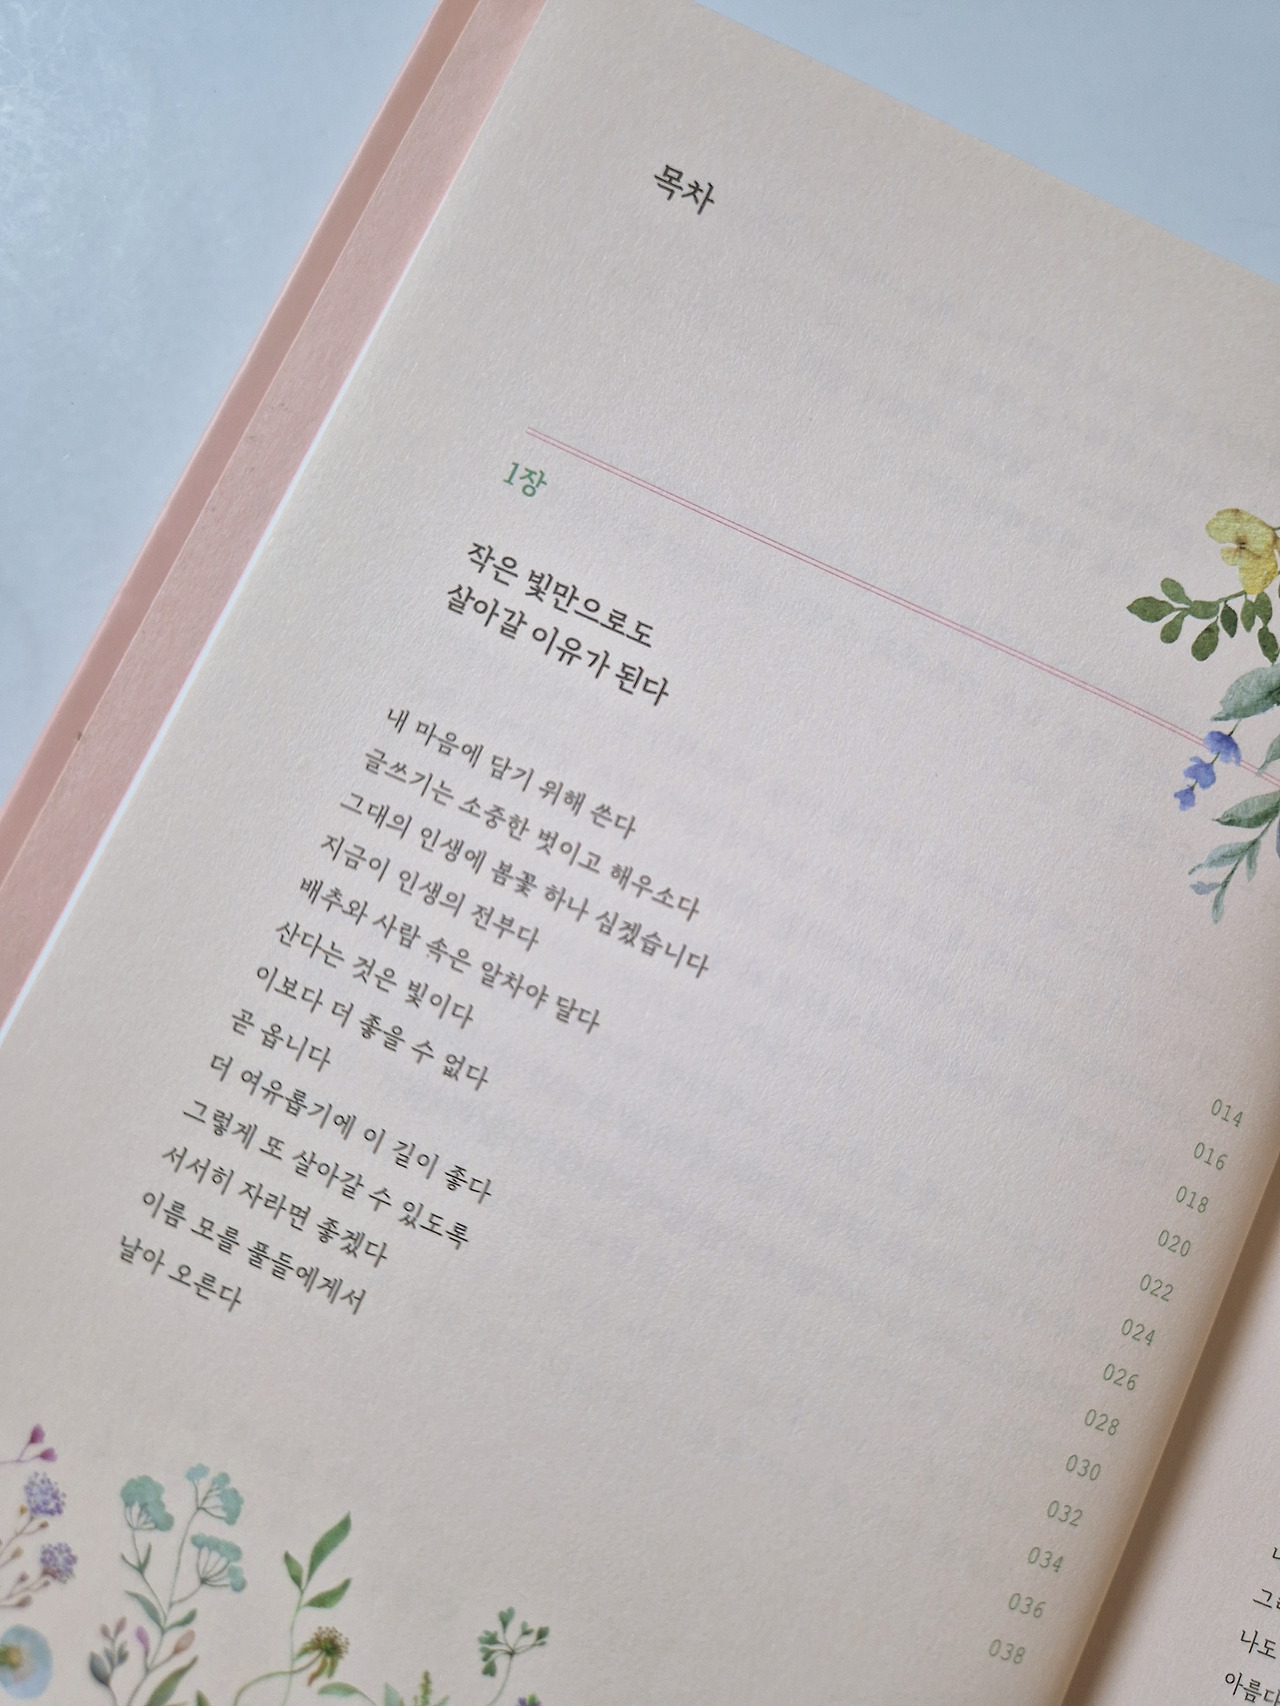 목차
1장
작은 빛만으로도
살아갈 이유가 된다
내 마음에 담기 위해 쓴다 014
글쓰기는 소중한 벗이고 해우소다 016
그대의 인생에 봄꽃 하나 심겠습니다 018
지금이 인생의 전부다 020
배추와 사람 속은 알차야 달다 022
산다는 것은 빛이다 024
이보다 더 좋을 수 없다 026
곧 옵니다 028
더 여유롭기에 이 길이 좋다 030
그렇게 또 살아갈 수 있도록 032
서서히 자라면 좋겠다 034
이름 모를 풀들에게서 036
날아 오른다 038
나도